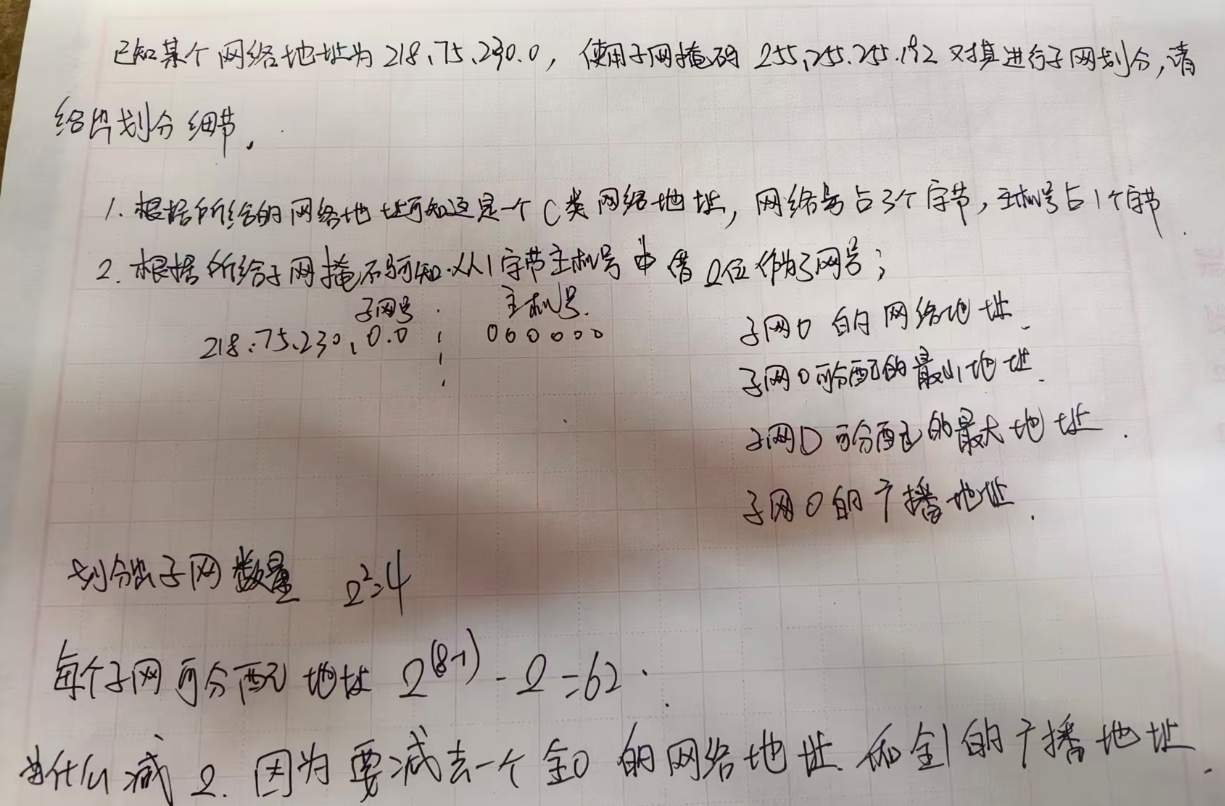 已知某个网络地址为218.75.230.0，使用子网掩码255.255.255.192对其进行子网划分，请
给出划分细节.
1. 根据所给的网络地址可知这是一个C类网络地址，网络号占3个字节，主机号占1个字节
2. 根据所给子网掩码可知.从1字节主机号中借2位作为子网号；
子网号 主机号.
218.75.230.0.0 000000 子网0的网络地址.
子网0可分配的最小地址.
子网0可分配的最大地址.
子网0的广播地址.
划分出子网数量 2²=4
每个子网可分配地址 2^(8-1) - 2 = 62.
为什么减2. 因为要减去一个全0的网络地址.和全1的广播地址.